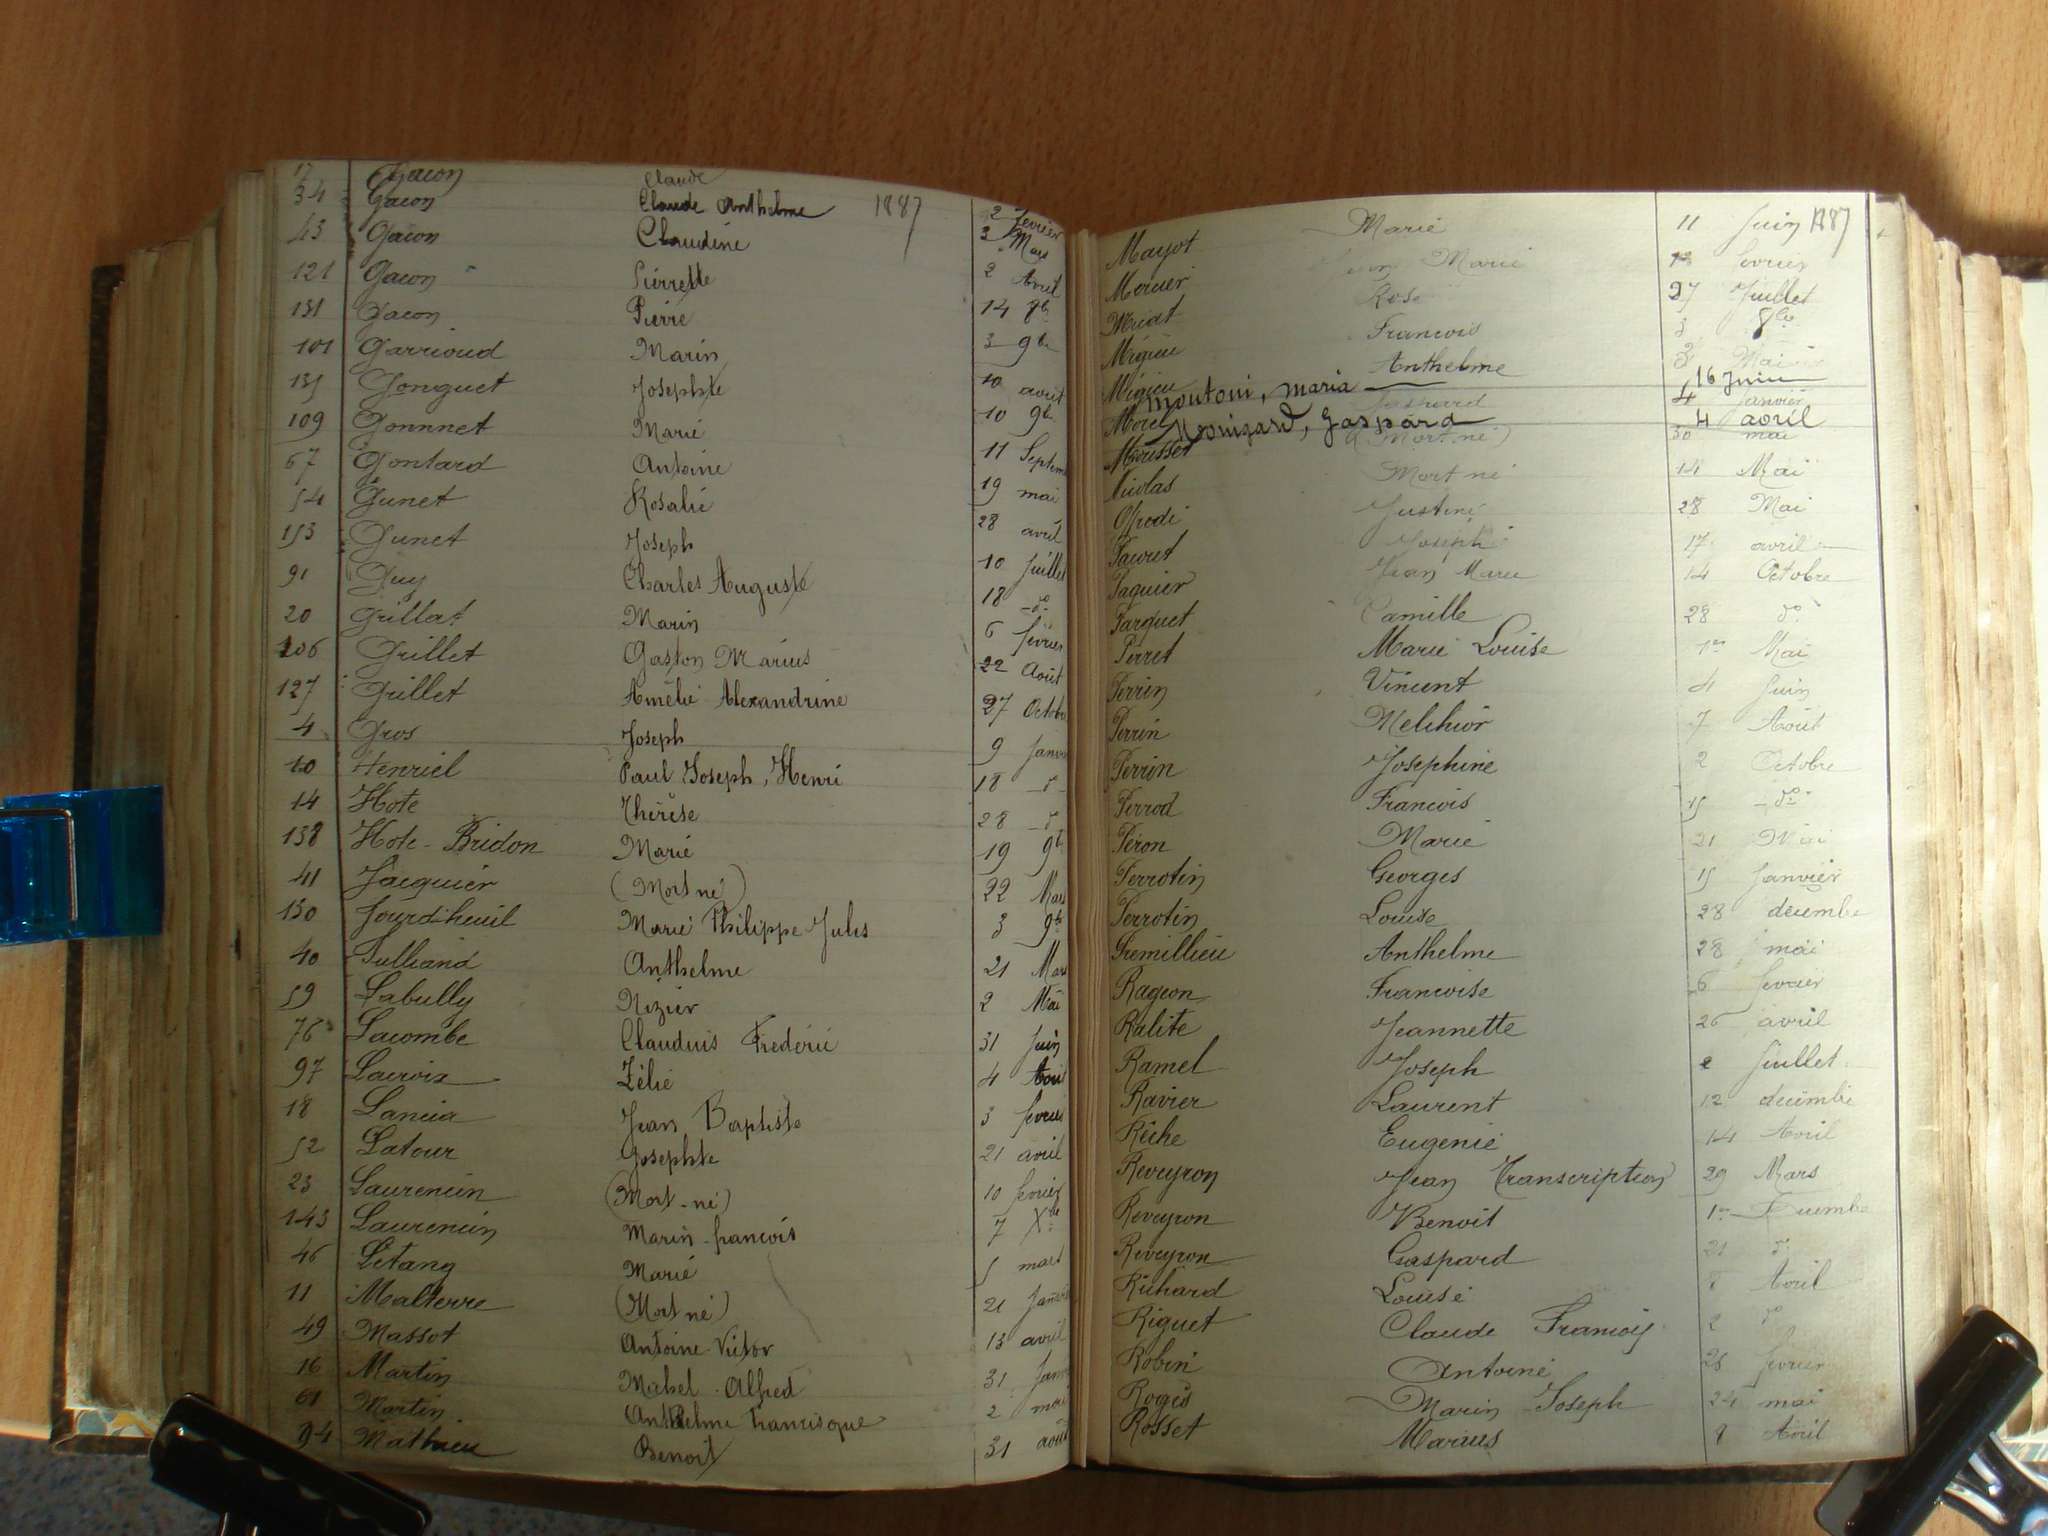 17 Gacon Claude
34 Gacon Claude Anthelme 1887 2 fevrier
43 Gacon Claudine 3 Mars
121 Gacon Pierrette 2 Avril
131 Gacon Pierre 14 8bre
101 Garrioud Marin 3 9bre
135 Gonguet Josephte 10 août
109 Gonnnet Marie 10 9bre
67 Gontard Antoine 11 Septem
54 Gunet Rosalie 19 mai
153 Gunet Joseph 28 avril
91 Guy Charles Auguste 10 Juillet
20 Grillat Marin 18 do
106 Grillet Gaston Marius 6 fevrier
127 Grillet Amélie Alexandrine 22 Août
4 Gros Joseph 27 Octobre
10 Henriel Paul Joseph, Henri 9 Janvier
14 Hote Thérèse 18 d
138 Hote-Bridon Marie 28 d
41 Jacquier (Mort né) 19 9b
130 Jourdiheuil Marie Philippe Jules 22 Mars
40 Julliand Anthelme 3 9b
59 Labully Nizier 21 Mars
76 Lacombe Claudius Frédéric 2 Mai
97 Lacroix Zélie 31 Juin
18 Lancia Jean Baptiste 4 Août
52 Latour Josephte 3 fevrier
23 Laurencin (Mort-né) 21 avril
143 Laurencin Marin-francois 10 fevrier
46 Létang Marie 7 Xbre
11 Malterre (Mort né) 5 mars
49 Massot Antoine-Victor 21 Janvier
16 Martin Michel-Alfred 13 avril
61 Martin Anthelme Francisque 31 Janv
94 Mathieu Benoit 2 mai
31 août
Mayot Marie 11 Juin 1887
Mercier Marie fevrier
Midt Rose 27 Juillet
Migieu Francois 3 8bre
Migieu Anthelme 3 Mai
moutoni, maria 16 Juin
Morel Gaspard 4 Janvier
Gaspard 4 avril
Mousset (Mort né) 30 mai
Nicolas Mort né 14 Mai
Offredi Justine 28 Mai
Pauvet Joseph 17 avril
Paquier Jean Marie 14 Octobre
Parquet Camille 28 do
Perret Marie Louise 1er Mai
Perrin Vincent 4 Juin
Perrin Melchior 7 Août
Perrin Josephine 2 Octobre
Perrod Francois 15 do
Péron Marie 21 Mai
Perrotin Georges 15 Janvier
Perrotin Louise 28 décembre
Premillieu Anthelme 28 mai
Rageon Francoise 6 fevrier
Ralite Jeannette 26 avril
Ramel Joseph 2 Juillet
Ravier Laurent 12 décembre
Rêche Eugenie 14 Avril
Reveyron Jean Transcription 29 Mars
Reveyron Benoit 1er Décembre
Reveyron Gaspard 21 d
Richard Louise 8 Avril
Riguet Claude Francois 2 d
Robin Antoine 28 fevrier
Rogès Marin-Joseph 24 mai
Rosset Marius 9 Avril